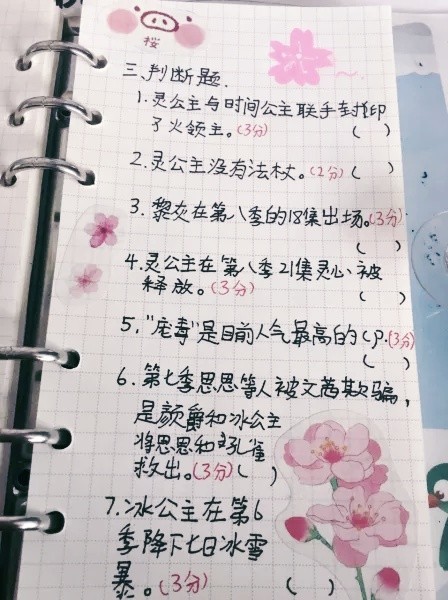 桜
三、判断题.
1.灵公主与时间公主联手封印
了火领主。(3分) ( )
2.灵公主没有法杖。(2分) ( )
3.黎灰在第八季的18集出场。(3分)
( )
4.灵公主在第八季21集灵心被
释放。(3分) ( )
5."庞毒"是目前人气最高的CP.(3分)
( )
6.第七季思思等人被文茜欺骗,
是颜爵和冰公主
将思思和孔雀
救出。(3分) ( )
7.冰公主在第6
季降下七日冰雪
暴。(3分) ( )